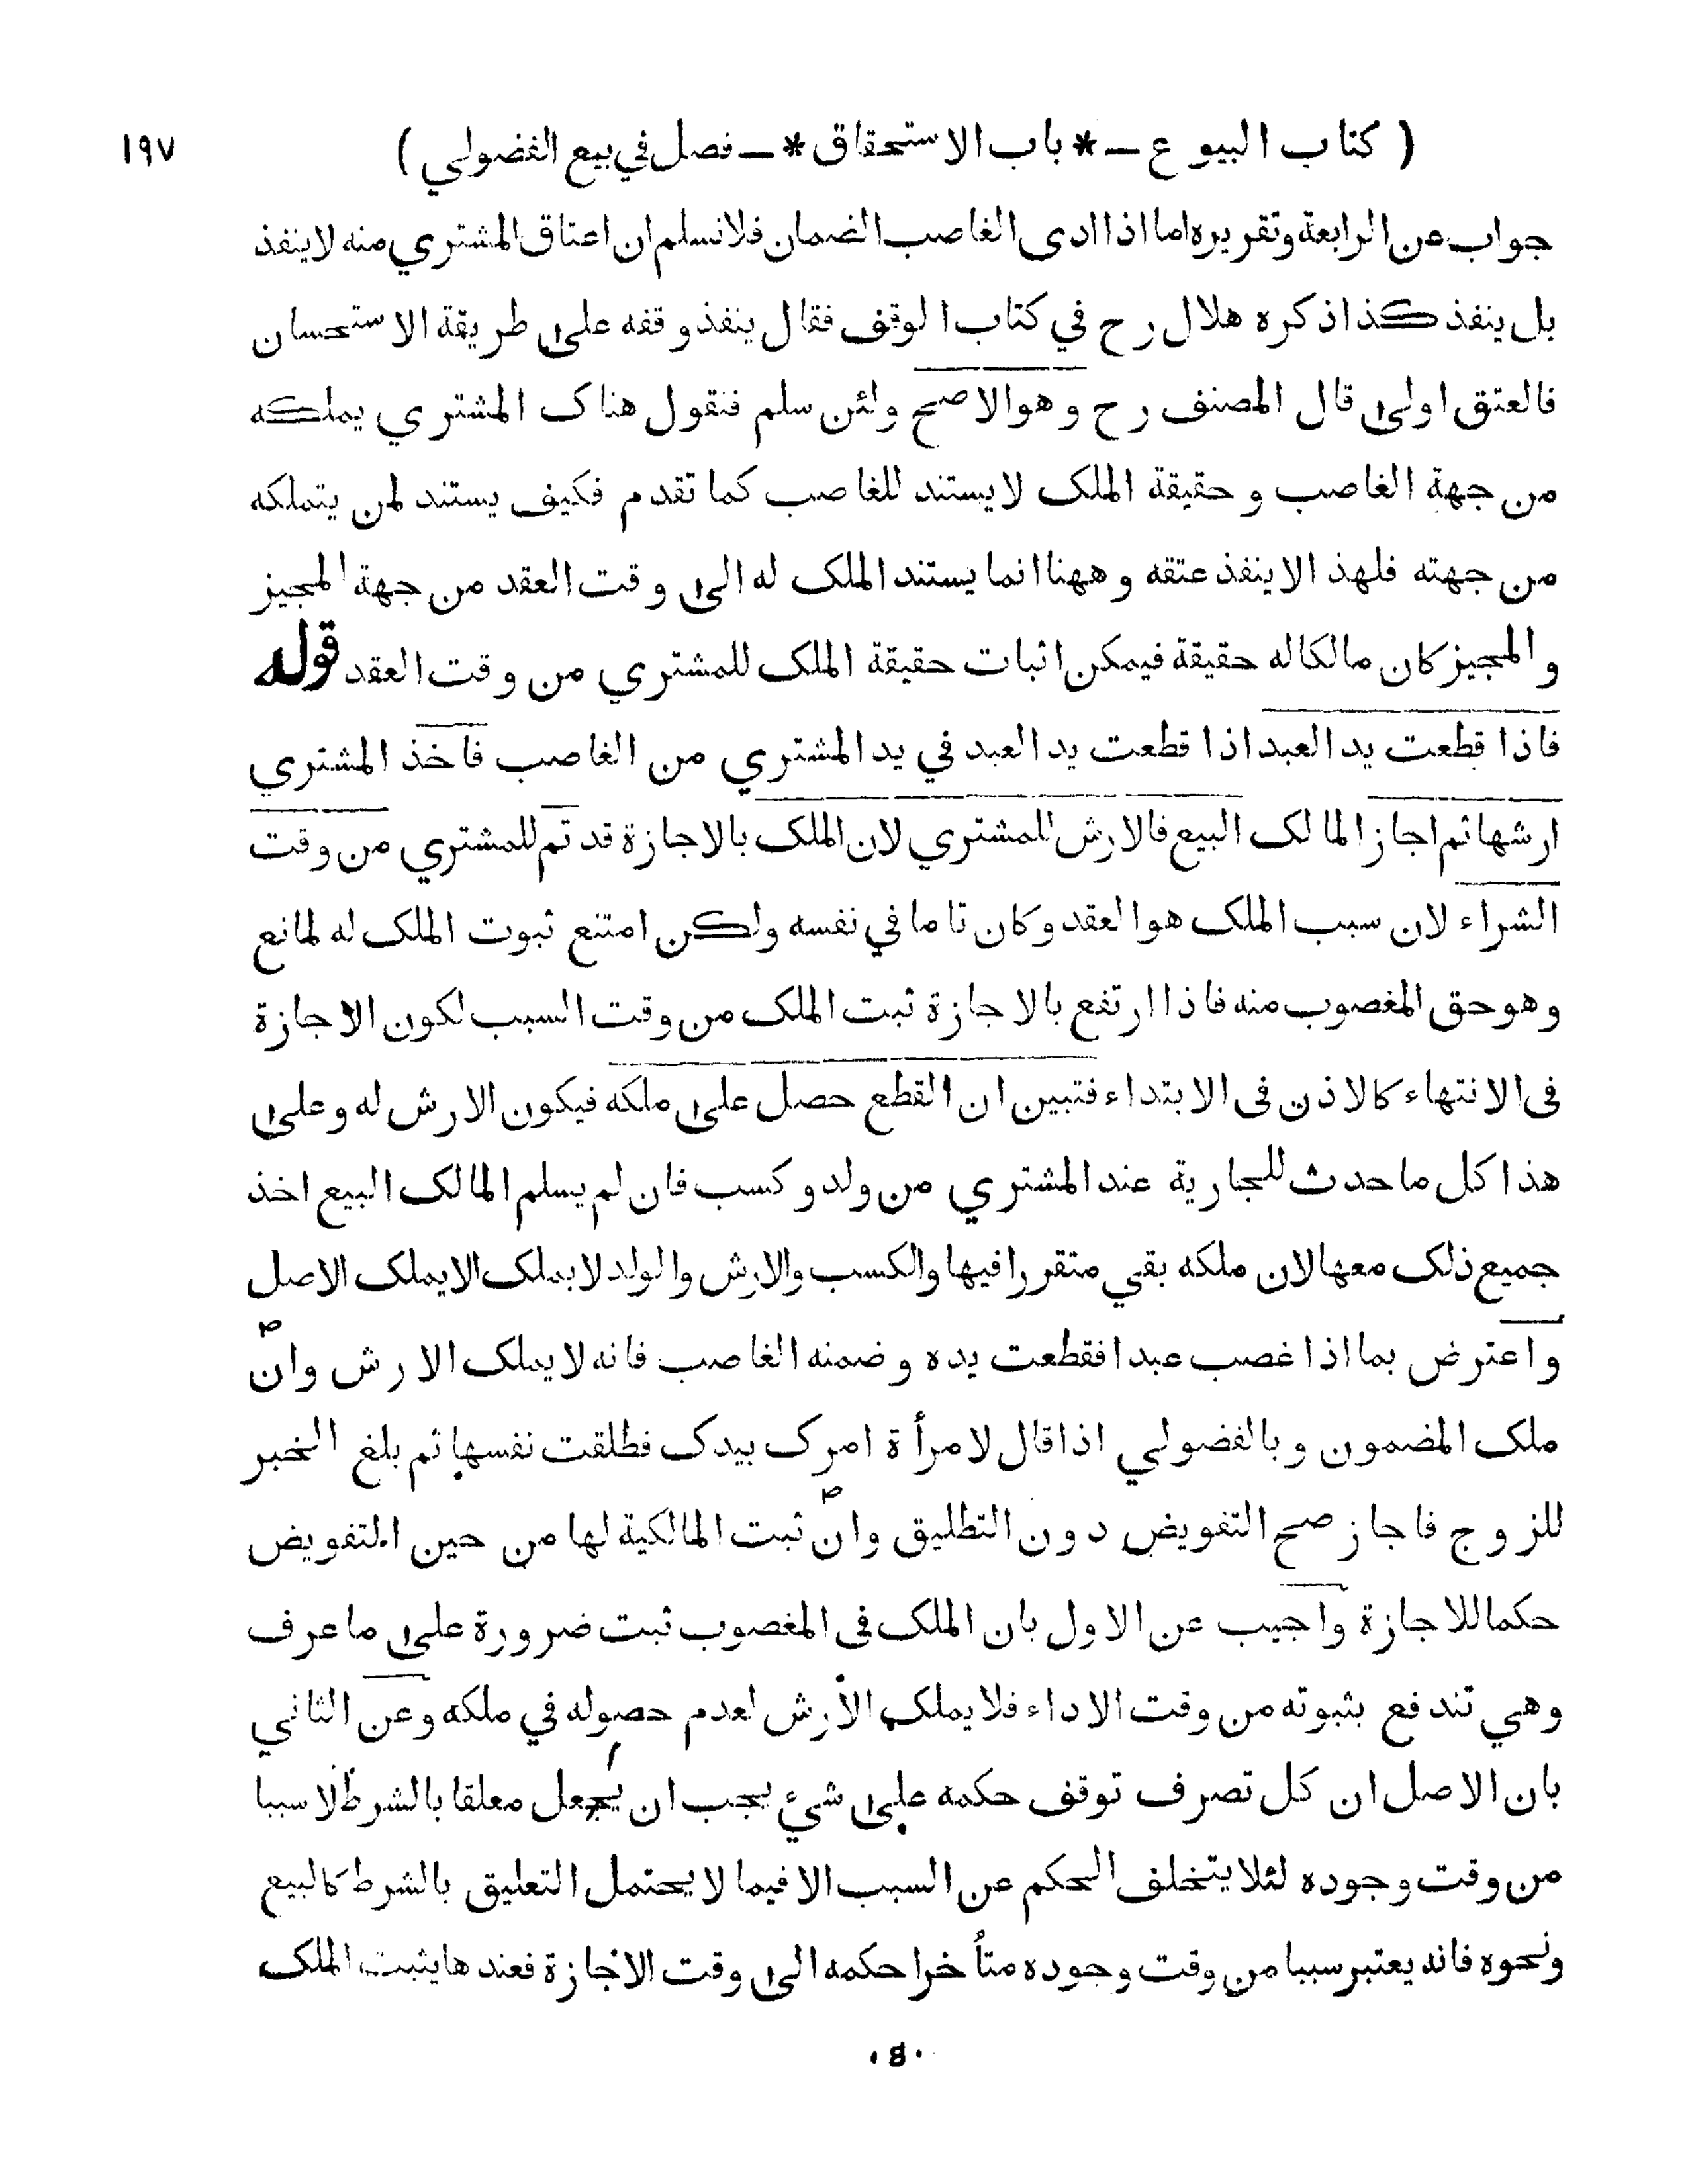 ( كتاب البيوع — * باب الاستحقاق * — فصل في بيع الفضولي ) ١٩٧
جواب عن الرابعة وتقريره اما اذا ادى الغاصب الضمان فلانسلم ان اعتاق المشتري منه لاينفذ
بل ينفذ كذا ذكره هلال رح في كتاب الوقف فقال ينفذ وقفه على طريقة الاستحسان
فالعتق اولى قال المصنف رح وهو الاصح ولئن سلم فنقول هناك المشتري يملكه
من جهة الغاصب و حقيقة الملك لا يستند للغاصب كما تقدم فكيف يستند لمن يتملكه
من جهته فلهذا لا ينفذ عتقه وههنا انما يستند الملك له الى وقت العقد من جهة المجيز
والمجيز كان مالكا له حقيقة فيمكن اثبات حقيقة الملك للمشتري من وقت العقد قوله
فاذا قطعت يد العبد اذا قطعت يد العبد في يد المشتري من الغاصب فاخذ المشتري
ارشها ثم اجاز المالك البيع فالارش للمشتري لان الملك بالاجازة قد تم للمشتري من وقت
الشراء لان سبب الملك هو العقد وكان تاما في نفسه ولكن امتنع ثبوت الملك له لمانع
وهو حق المغصوب منه فاذا ارتفع بالاجازة ثبت الملك من وقت السبب لكون الاجازة
فى الانتهاء كالاذن فى الابتداء فتبين ان القطع حصل على ملكه فيكون الارش له وعلى
هذا كل ما حدث للجارية عند المشتري من ولد و كسب فان لم يسلم المالك البيع اخذ
جميع ذلك معها لان ملكه بقي متقررا فيها والكسب والارش والولد لا يملك الا بملك الاصل
واعترض بما اذا غصب عبدا فقطعت يده وضمنه الغاصب فانه لا يملك الارش وان
ملك المضمون وبالفضولي اذا قال لامرأة امرك بيدك فطلقت نفسها ثم بلغ الخبر
للزوج فاجاز صح التفويض دون التطليق وان ثبت المالكية لها من حين التفويض
حكما للاجازة واجيب عن الاول بان الملك فى المغصوب ثبت ضرورة على ما عرف
وهي تندفع بثبوته من وقت الاداء فلا يملك الأرش لعدم حصوله في ملكه وعن الثاني
بان الاصل ان كل تصرف توقف حكمه على شيء يجب ان يُجعل معلقا بالشرط لا سببا
من وقت وجوده لئلا يتخلف الحكم عن السبب الا فيما لا يحتمل التعليق بالشرط كالبيع
ونحوه فانه يعتبر سببا من وقت وجوده متأخرا حكمه الى وقت الاجازة فعندها يثبت الملك